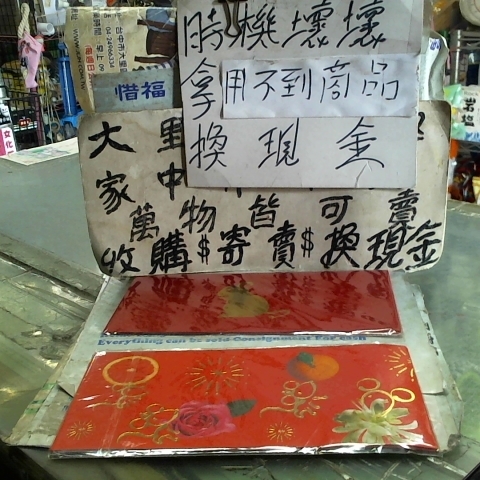 時機壞壞
惜福
拿用不到商品
換現金
大里
家中
萬物皆可賣
收購$寄賣$換現金
Everything can be sold Consignment For Cash
岩塩